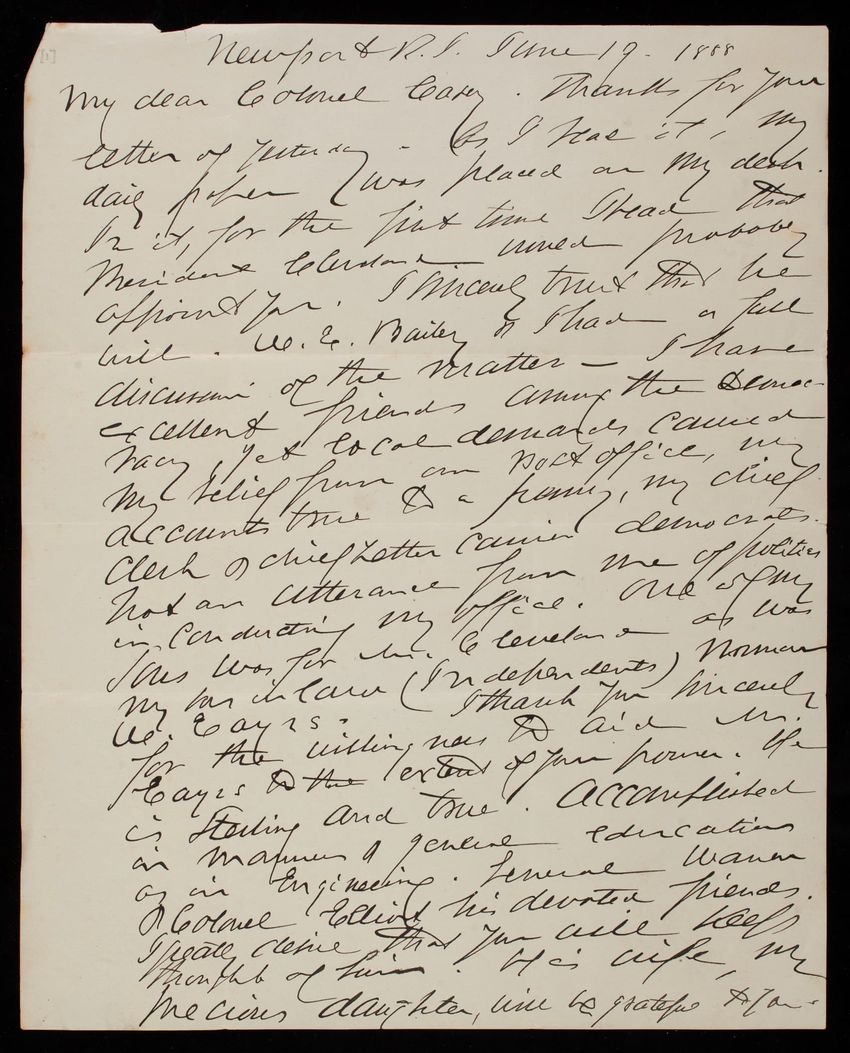 [1]
Newport R.I. June 19. 1888
My dear Colonel Casey. Thanks for your
letter of yesterday. As I read it, my
daily paper was placed on my desk.
In it, for the first time I read that
President Cleveland would probably
appoint you. I sincerely trust that he
will. W. E. Bailey & I had a full
discussion of the matter — I have
excellent friends among the Democ-
racy, yet local demands caused
my relief from our Post office, my
accounts true to a penny, my chief
Clerk & chief Letter Carrier democrats.
Not an utterance from me of politics
in conducting my office. One of my
sons was for Mr. Cleveland as was
my son in law (Independents) Norman
W. Cayrs. I thank you sincerely
for the willingness to aid Mr.
Cayrs to the extent of your power. He
is Sterling and true. Accomplished
in manners & general education
as in Engineering. General Warren
& Colonel Elliot his devoted friends.
I greatly desire that you will keep
thought of him. His wife, my
precious daughter, will be grateful to you.